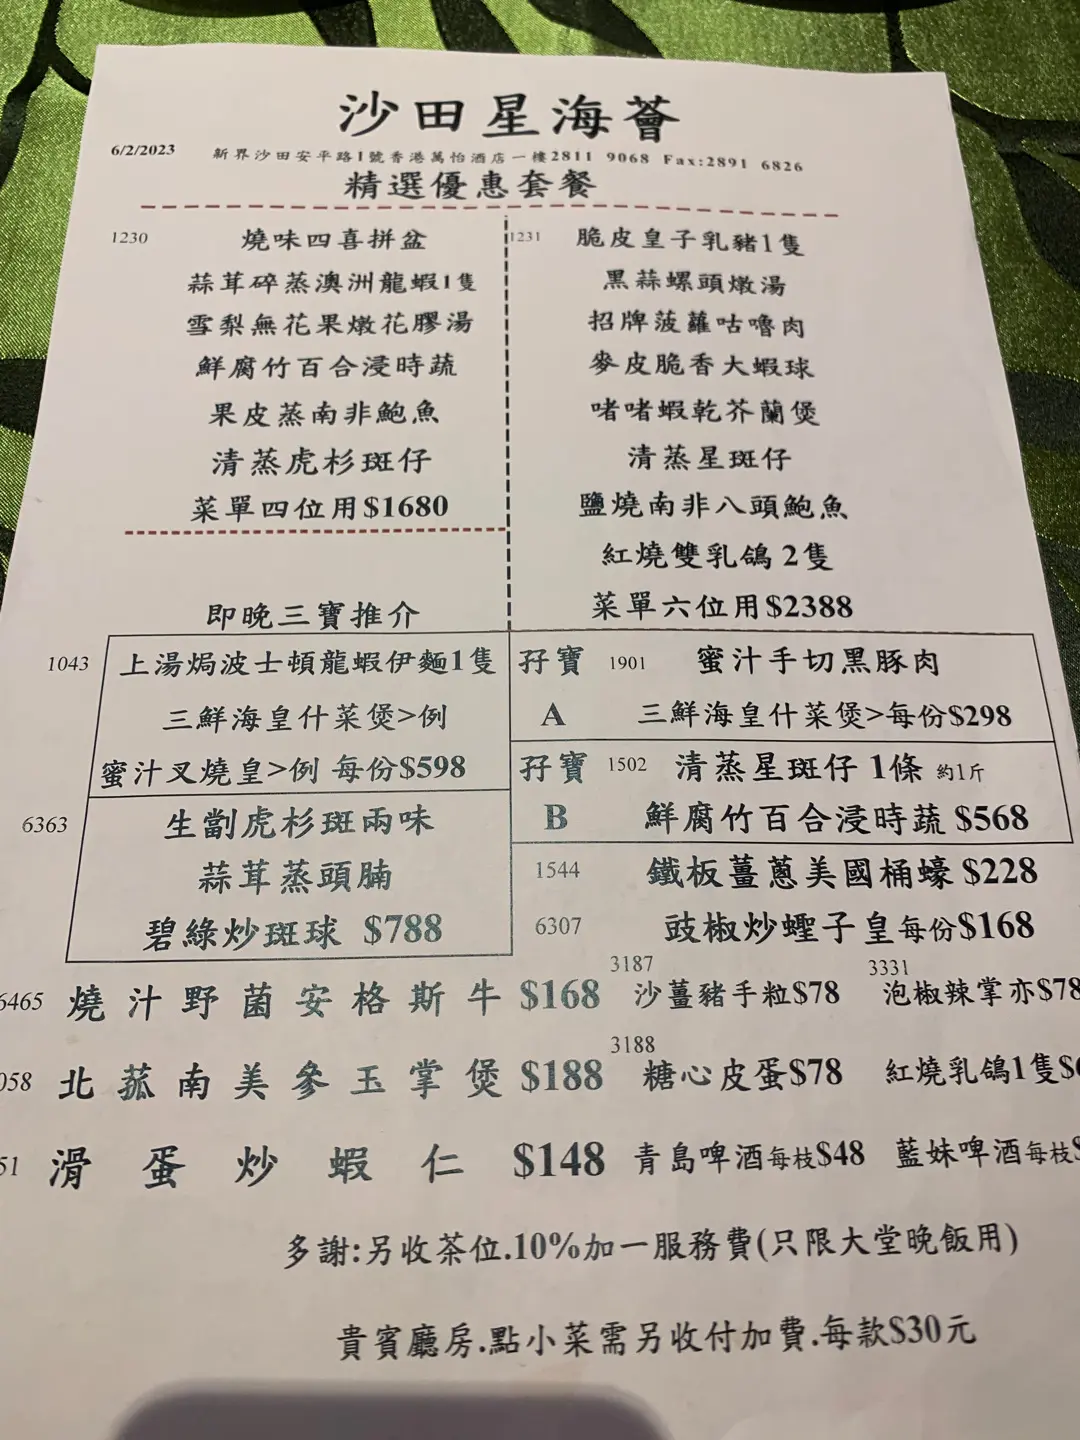 沙田星海薈
6/2/2023 新界沙田安平路1號香港萬怡酒店一樓2811 9068 Fax:2891 6826
精選優惠套餐
1230 燒味四喜拼盆
蒜茸碎蒸澳洲龍蝦1隻
雪梨無花果燉花膠湯
鮮腐竹百合浸時蔬
果皮蒸南非鮑魚
清蒸虎杉斑仔
菜單四位用$1680
1231 脆皮皇子乳豬1隻
黑蒜螺頭燉湯
招牌菠蘿咕嚕肉
麥皮脆香大蝦球
啫啫蝦乾芥蘭煲
清蒸星斑仔
鹽燒南非八頭鮑魚
紅燒雙乳鴿2隻
菜單六位用$2388
即晚三寶推介
1043 上湯焗波士頓龍蝦伊麵1隻
三鮮海皇什菜煲>例
蜜汁叉燒皇>例 每份$598
孖寶 1901 蜜汁手切黑豚肉
A 三鮮海皇什菜煲>每份$298
孖寶 1502 清蒸星斑仔1條 約1斤
B 鮮腐竹百合浸時蔬 $568
6363 生劏虎杉斑兩味
蒜茸蒸頭腩
碧綠炒斑球 $788
1544 鐵板薑蔥美國桶蠔 $228
6307 豉椒炒蟶子皇每份$168
6465 燒汁野菌安格斯牛 $168
3187
沙薑豬手粒$78
3331
泡椒辣掌亦$78
058 北菰南美參玉掌煲 $188
3188
糖心皮蛋$78
紅燒乳鴿1隻$
51 滑蛋炒蝦仁 $148
青島啤酒每枝$48
藍妹啤酒每枝$
多謝:另收茶位.10%加一服務費(只限大堂晚飯用)
貴賓廳房.點小菜需另收付加費.每款$30元